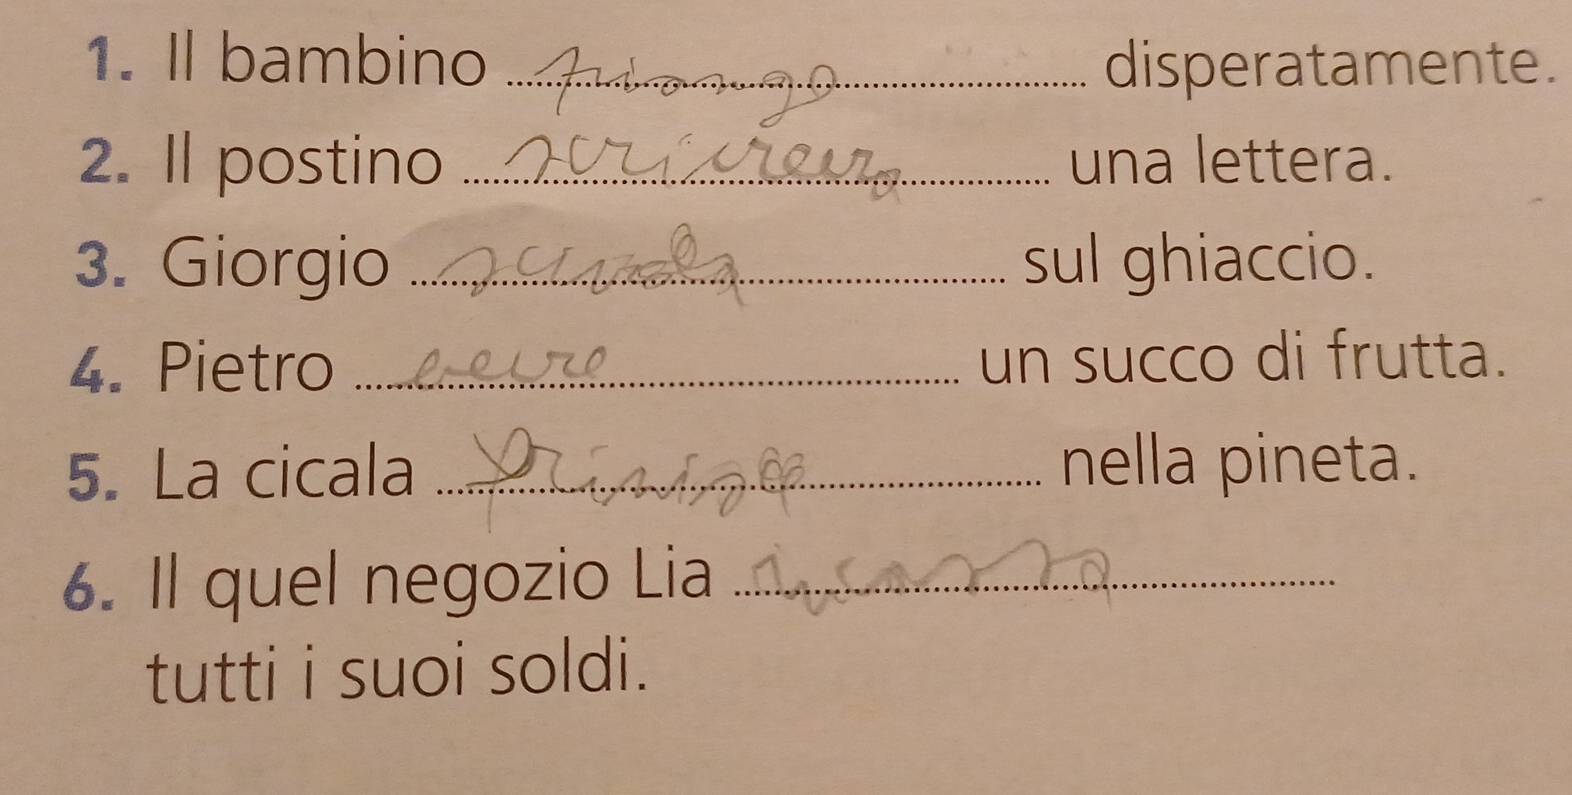 1. Il bambino piange disperatamente.
2. Il postino una lettera.
3. Giorgio scivola sul ghiaccio.
4. Pietro beve un succo di frutta.
5. La cicala nella pineta.
6. Il quel negozio Lia
tutti i suoi soldi.